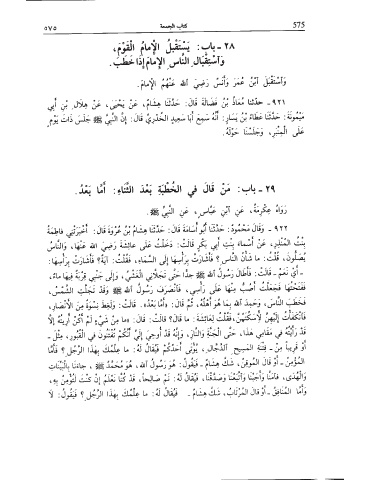 575 كتاب الجمعة ٥٧٥
٢٨ - باب: يَسْتَقْبِلُ الإِمَامُ الْقَوْمَ،
وَاسْتِقْبَالِ النَّاسِ الإِمَامَ إِذَا خَطَبَ.
وَاسْتَقْبَلَ ابْنُ عُمَرَ وَأَنَسٌ رَضِيَ اللهُ عَنْهُمُ الإِمَامَ.
٩٢١ - حدّثنا مُعَاذُ بْنُ فَضَالَةَ قَالَ: حَدَّثَنَا هِشَامٌ، عَنْ يَحْيَى، عَنْ هِلَالِ بْنِ أَبِي
مَيْمُونَةَ: حَدَّثَنَا عَطَاءُ بْنُ يَسَارٍ: أَنَّهُ سَمِعَ أَبَا سَعِيدٍ الخُدْرِيَّ قَالَ: إِنَّ النَّبِيَّ ﷺ جَلَسَ ذَاتَ يَوْمٍ
عَلَى الْمِنْبَرِ، وَجَلَسْنَا حَوْلَهُ.
٢٩ - باب: مَنْ قَالَ فِي الْخُطْبَةِ بَعْدَ الثَّنَاءِ: أَمَّا بَعْدُ.
رَوَاهُ عِكْرِمَةُ، عَنِ ابْنِ عَبَّاسٍ، عَنِ النَّبِيِّ ﷺ.
٩٢٢ - وَقَالَ مَحْمُودٌ: حَدَّثَنَا أَبُو أُسَامَةَ قَالَ: حَدَّثَنَا هِشَامُ بْنُ عُرْوَةَ قَالَ: أَخْبَرَتْنِي فَاطِمَةُ
بِنْتُ الْمُنْذِرِ، عَنْ أَسْمَاءَ بِنْتِ أَبِي بَكْرٍ قَالَتْ: دَخَلْتُ عَلَى عَائِشَةَ رَضِيَ اللهُ عَنْهَا، وَالنَّاسُ
يُصَلُّونَ، قُلْتُ: مَا شَأْنُ النَّاسِ؟ فَأَشَارَتْ بِرَأْسِهَا إِلَى السَّمَاءِ، فَقُلْتُ: آيَةٌ؟ فَأَشَارَتْ بِرَأْسِهَا:
- أَيْ نَعَمْ - قَالَتْ: فَأَطَالَ رَسُولُ اللهِ ﷺ جِدًّا حَتَّى تَجَلَّانِي الْغَشْيُ، وَإِلَى جَنْبِي قِرْبَةٌ فِيهَا مَاءٌ،
فَفَتَحْتُهَا فَجَعَلْتُ أَصُبُّ مِنْهَا عَلَى رَأْسِي، فَانْصَرَفَ رَسُولُ اللهِ ﷺ وَقَدْ تَجَلَّتِ الشَّمْسُ،
فَخَطَبَ النَّاسَ، وَحَمِدَ اللهَ بِمَا هُوَ أَهْلُهُ، ثُمَّ قَالَ: «أَمَّا بَعْدُ». قَالَتْ: وَلَغِطَ نِسْوَةٌ مِنَ الأَنْصَارِ،
فَانْكَفَأْتُ إِلَيْهِنَّ لِأُسَكِّتَهُنَّ، فَقُلْتُ لِعَائِشَةَ: مَا قَالَ؟ قَالَتْ: قَالَ: «مَا مِنْ شَيْءٍ لَمْ أَكُنْ أُرِيتُهُ إِلَّا
قَدْ رَأَيْتُهُ فِي مَقَامِي هَذَا، حَتَّى الْجَنَّةَ وَالنَّارَ، وَإِنَّهُ قَدْ أُوحِيَ إِلَيَّ أَنَّكُمْ تُفْتَنُونَ فِي الْقُبُورِ، مِثْلَ -
أَوْ قَرِيباً مِنْ - فِتْنَةِ الْمَسِيحِ الدَّجَّالِ، يُؤْتَى أَحَدُكُمْ فَيُقَالُ لَهُ: مَا عِلْمُكَ بِهَذَا الرَّجُلِ؟ فَأَمَّا
الْمُؤْمِنُ - أَوْ قَالَ الْمُوقِنُ، شَكَّ هِشَامٌ - فَيَقُولُ: هُوَ رَسُولُ اللهِ، هُوَ مُحَمَّدٌ ﷺ، جَاءَنَا بِالْبَيِّنَاتِ
وَالْهُدَى، فَآمَنَّا وَأَجَبْنَا وَاتَّبَعْنَا وَصَدَّقْنَا، فَيُقَالُ لَهُ: نَمْ صَالِحاً، قَدْ كُنَّا نَعْلَمُ إِنْ كُنْتَ لَتُؤْمِنُ بِهِ،
وَأَمَّا الْمُنَافِقُ - أَوْ قَالَ الْمُرْتَابُ، شَكَّ هِشَامٌ - فَيُقَالُ لَهُ: مَا عِلْمُكَ بِهَذَا الرَّجُلِ؟ فَيَقُولُ: لَا